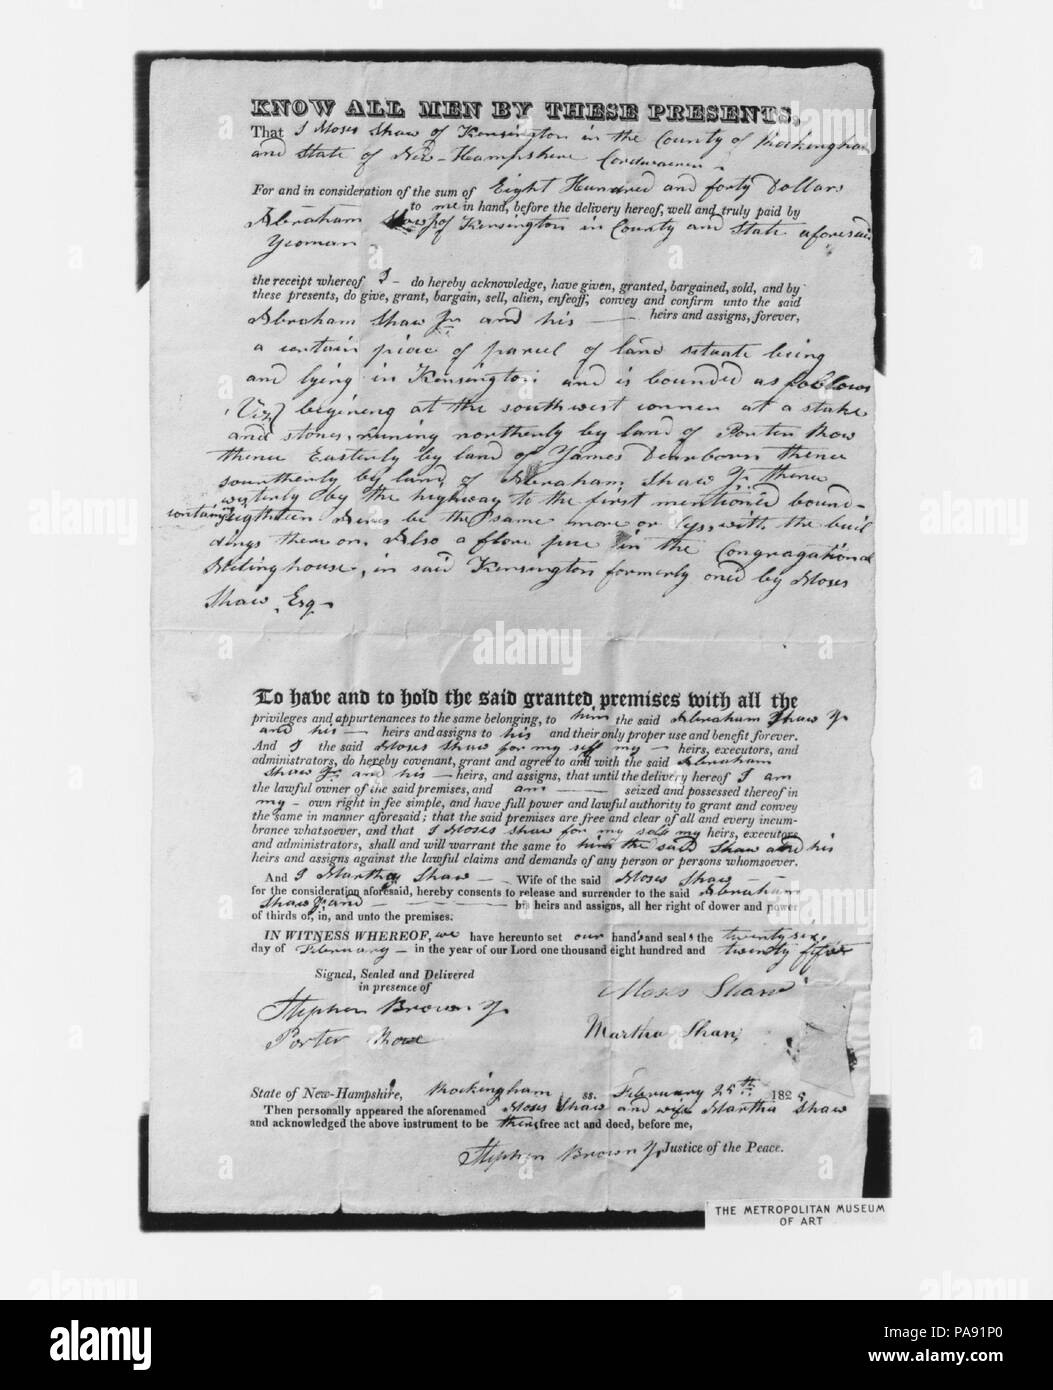 KNOW ALL MEN BY THESE PRESENTS,
That I Moses Shaw of Kensington in the County of Rockingham
and State of New-Hampshire Cordwainer
For and in consideration of the sum of Eight Hundred and forty Dollars
to me in hand, before the delivery hereof, well and truly paid by
Abraham Shaw Jr of Kensington in County and State aforesaid
Yeoman
the receipt whereof I do hereby acknowledge, have given, granted, bargained, sold, and by
these presents, do give, grant, bargain, sell, alien, enfeoff, convey and confirm unto the said
Abraham Shaw Jr. and his — heirs and assigns, forever,
a certain piece of parcel of land situate being
and lying in Kensington and is bounded as follows
(Viz) begining at the southwest corner at a stake
and stones, runing northerly by land of Porter Row
thence Easterly by land of James Dearborn thence
southerly by land of Abraham Shaw Jr. thence
westerly by the highway to the first mentioned bound-
containing eighteen Acres be the same more or less, with the buil
dings there on. Also a flore pue in the Congragational
Meetinghouse, in said Kensington formerly oned by Moses
Shaw Esq-
To have and to hold the said granted premises with all the
privileges and appurtenances to the same belonging, to him the said Abraham Shaw Jr
and his — heirs and assigns to his and their only proper use and benefit forever.
And I the said Moses Shaw for my self my — heirs, executors, and
administrators, do hereby covenant, grant and agree to and with the said Abraham
Shaw Jr. and his — heirs, and assigns, that until the delivery hereof I am
the lawful owner of the said premises, and am — seized and possessed thereof in
my — own right in fee simple, and have full power and lawful authority to grant and convey
the same in manner aforesaid; that the said premises are free and clear of all and every incum-
brance whatsoever, and that I Moses Shaw for my self my heirs, executors
and administrators, shall and will warrant the same to him the said Shaw and his
heirs and assigns against the lawful claims and demands of any person or persons whomsoever.
And I Martha Shaw — Wife of the said Moses Shaw —
for the consideration aforesaid, hereby consents to release and surrender to the said Abraham
Shaw Jr. and — his heirs and assigns, all her right of dower and power
of thirds of, in, and unto the premises.
IN WITNESS WHEREOF, we have hereunto set our hands and seals the twenty six
day of February — in the year of our Lord one thousand eight hundred and twenty fifve
Signed, Sealed and Delivered
in presence of
Stephen Brown Jr
Porter Rowe
Moses Shaw
Martha Shaw
State of New-Hampshire, Rockingham ss. February 25th 1825
Then personally appeared the aforenamed Moses Shaw and wife Martha Shaw
and acknowledged the above instrument to be their free act and deed, before me,
Stephen Brown Jr, Justice of the Peace.
THE METROPOLITAN MUSEUM
OF ART
alamy
Image ID: PA91P0
www.alamy.com